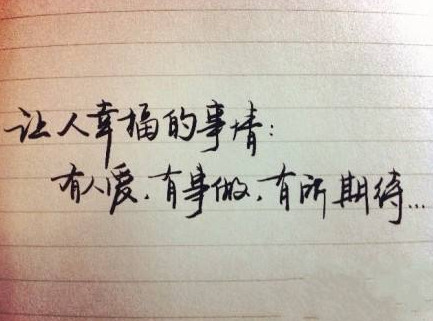 让人幸福的事情：
有人爱，有事做，有所期待...